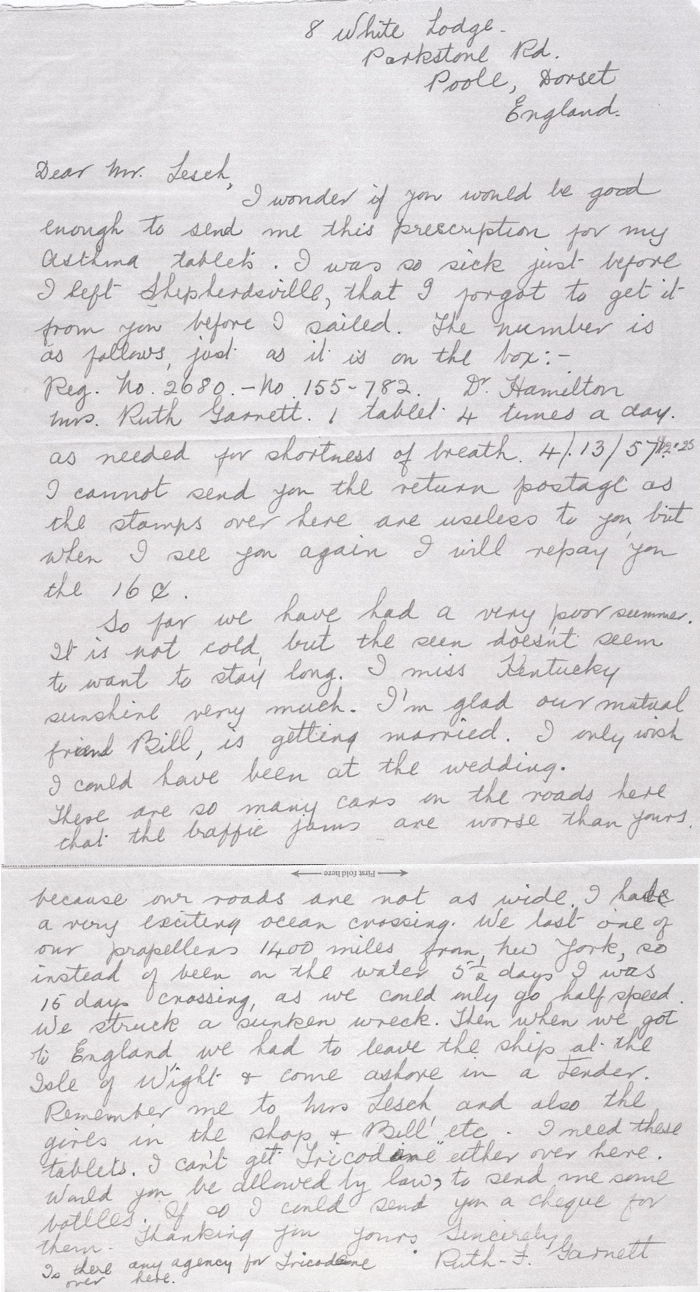 8 White Lodge.
Parkstone Rd.
Poole, Dorset
England.
Dear Mr. Lesch,
I wonder if you would be good
enough to send me this prescription for my
Asthma tablets. I was so sick just before
I left Shepherdsville, that I forgot to get it
from you before I sailed. The number is
as follows, just as it is on the box:-
Reg. No. 2680. - No. 155-782. Dr. Hamilton
Mrs. Ruth Garnett. 1 tablet 4 times a day.
as needed for shortness of breath. 4/.13/57
I cannot send you the return postage as
the stamps over here are useless to you, but
when I see you again I will repay you
the 16¢.
So far we have had a very poor summer.
It is not cold, but the seen doesn't seem
to want to stay long. I miss Kentucky
sunshine very much. I'm glad our mutual
friend Bill, is getting married. I only wish
I could have been at the wedding.
There are so many cars on the roads here
that the traffic jams are worse than yours.
First fold here
because our roads are not as wide. I had
a very exciting ocean crossing. We lost one of
our propellers 1400 miles from New York, so
instead of been on the water 5½ days I was
15 days crossing, as we could only go half speed.
We struck a sunken wreck. Then when we got
to England we had to leave the ship at the
Isle of Wight & come ashore in a Tender.
Remember me to Mrs Lesch and also the
girls in the shop & Bill etc. I need these
tablets. I can't get Tricodene either over here.
Would you be allowed by law, to send me some
bottles. If so I could send you a cheque for
them. Thanking you yours Sincerely
Ruth-F. Garnett
Is there any agency for Tricodene
over here.